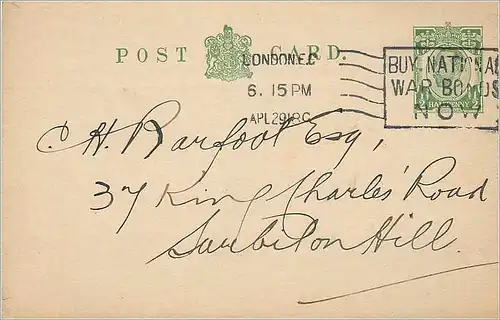 POST CARD.
LONDON.E.C
6. 15 PM
APL 29 18 C
BUY NATIONAL
WAR BONDS
NOW
HALFPENNY
C. H. Barfoot Esq,
37 King Charles' Road
Surbiton Hill.